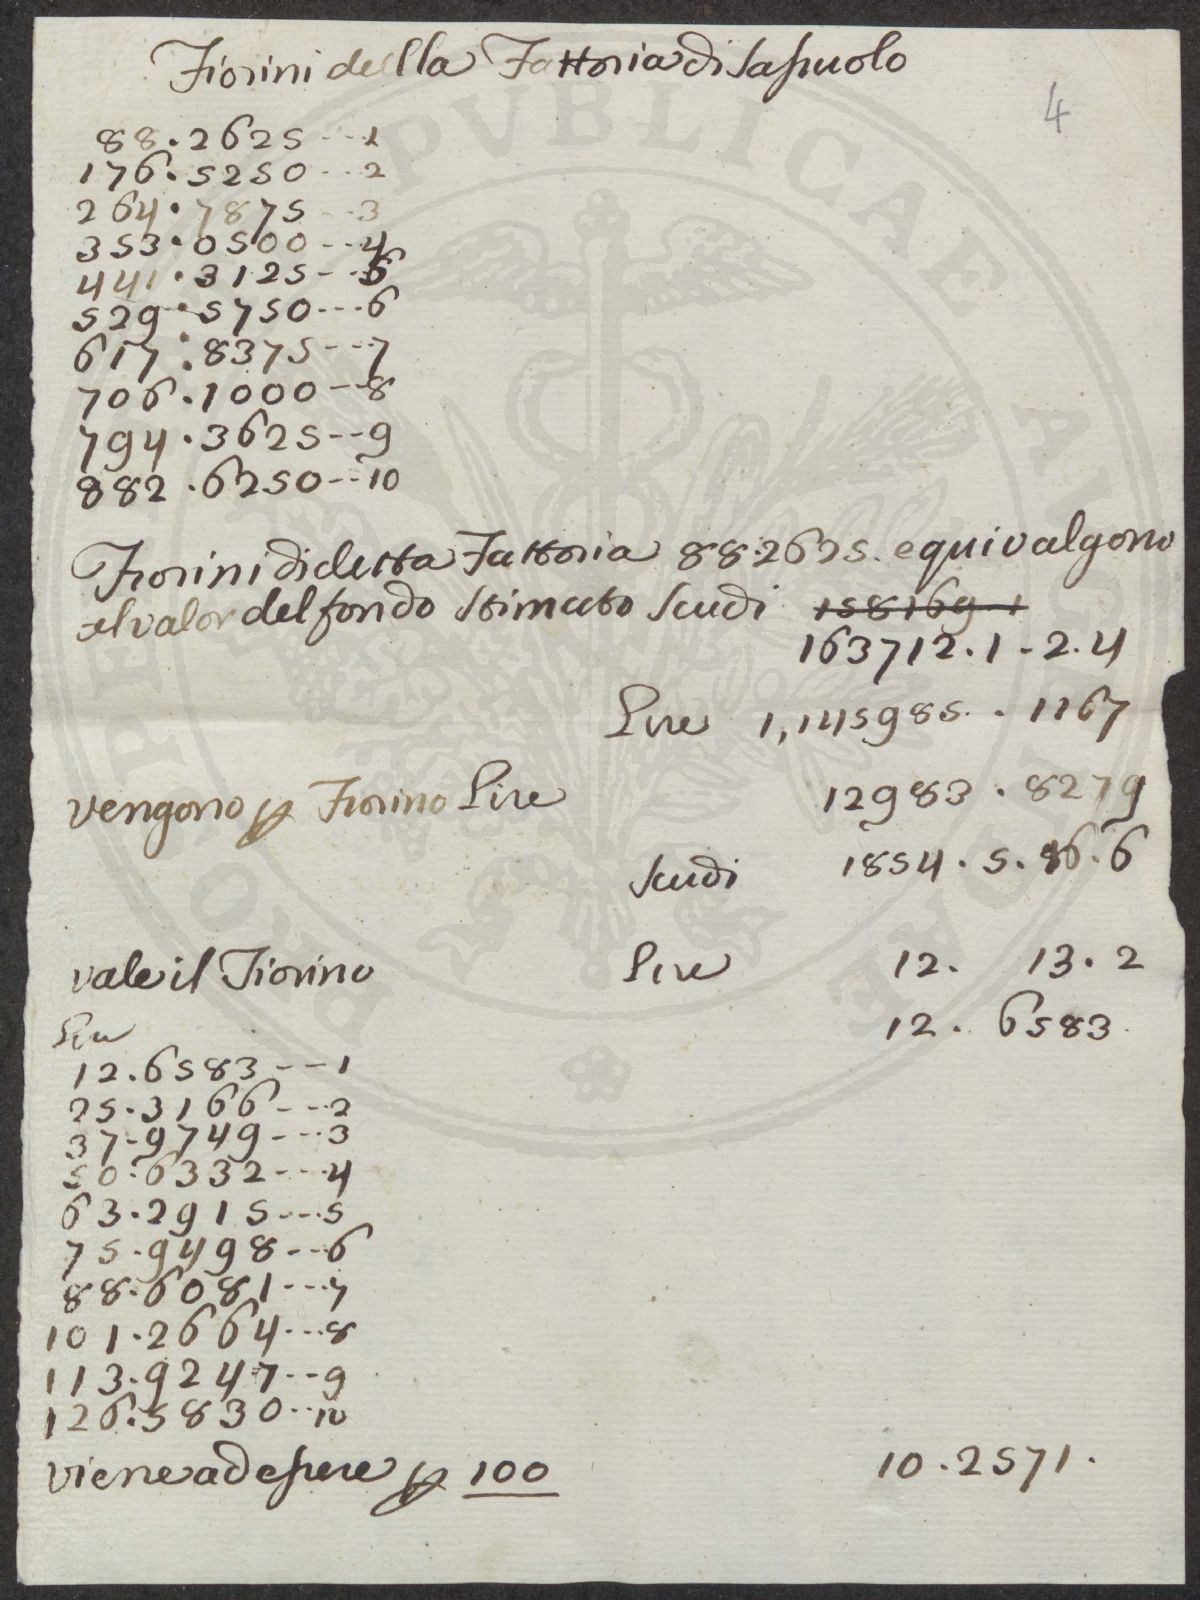 Fiorini della Fattoria di Sassuolo
4
88.2625---1
176.5250---2
264.7875---3
353.0500---4
441.3125---5
529.5750---6
617.8375---7
706.1000---8
794.3625---9
882.6250---10
Fiorini di detta Fattoria 88.2625. equivalgono
al valor del fondo stimato Scudi 158169-1
163712.1-2.4
Lire 1,145985..1167
vengono p Fiorino Lire 12983.8279
Scudi 1854.5.16.6
vale il Fiorino Lire 12. 13.2
Lire 12. 6583.
12.6583---1
25.3166---2
37.9749---3
50.6332---4
63.2915---5
75.9498---6
88.6081---7
101.2664---8
113.9247---9
126.5830---10
viene ad essere p 100 10.2571.
PVBLICAE